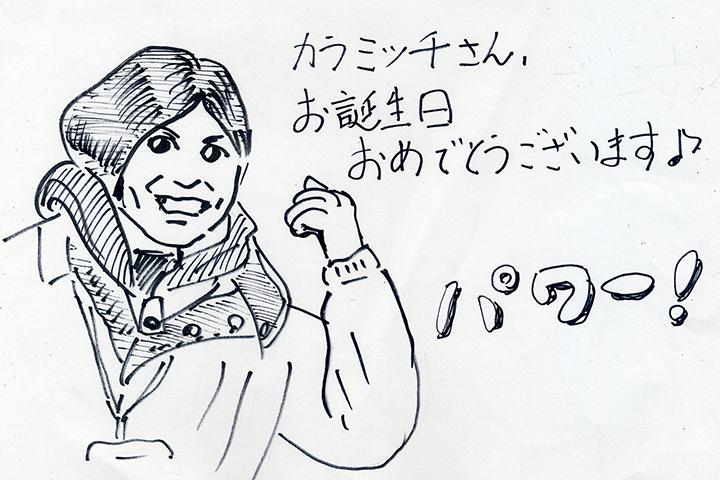 カラミッチさん、
お誕生日
おめでとうございます♪
パワー!